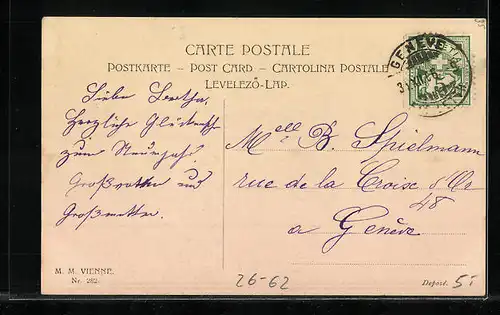 CARTE POSTALE
POSTKARTE – POST CARD – CARTOLINA POSTALE
LEVELEZŐ-LAP.
GENÈVE
Liebe Bertha,
Herzliche Glückwünsche
zum Neujahr!
Großvatter und
Großmutter.
Melle B. Spielmann
rue de la Croix d'Or
48
a Genève
M. M. VIENNE.
Nr. 282.
26-62
Depost. 5-